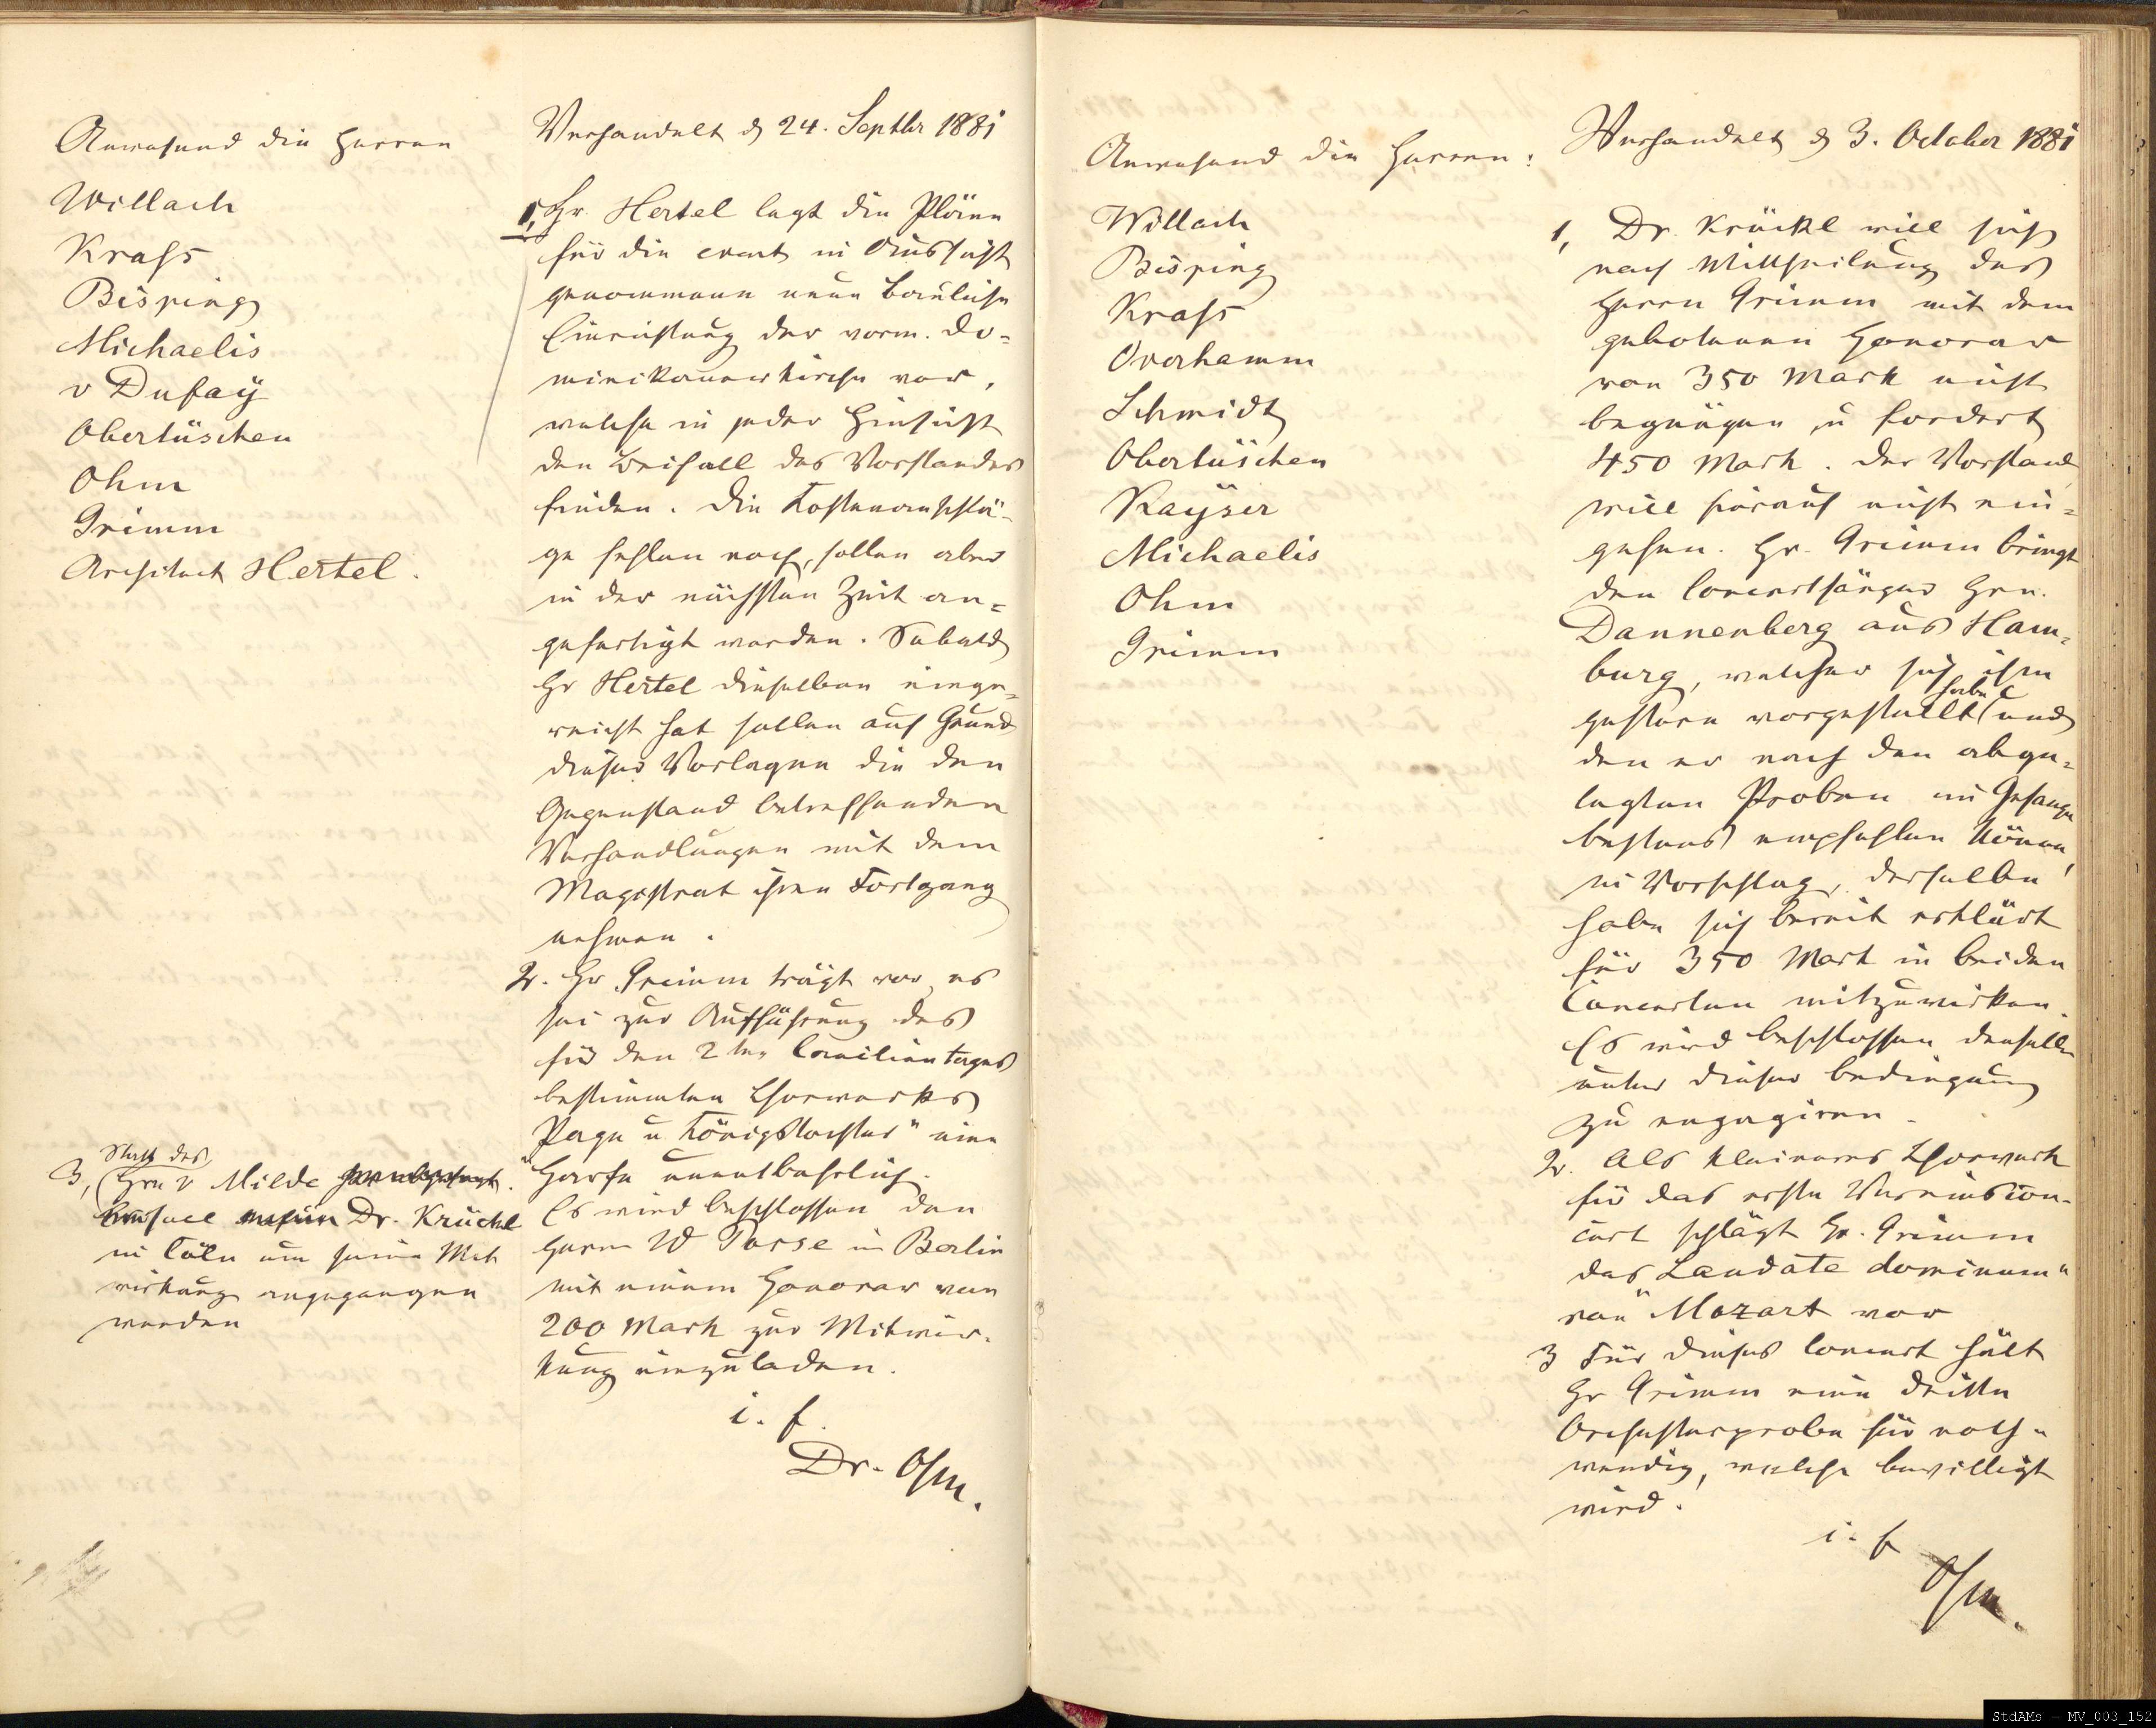 Anwesend die Herren
Willach
Krass
Bisping
Michaelis
v Dufay
Obertüschen
Ohm
Grimm
Architect Hertel.
Statt des
3, Hrn v Milde
soll Dr. Krückl
in Cöln um seine Mit
wirkung angegangen
werden
Verhandelt d 24. Septbr 1881
1, Hr. Hertel legt die Pläne
für die event in Aussicht
genommene neue bauliche
Einrichtung der vorm. Do-
minikanerkirche vor,
welche in jeder Hinsicht
den Beifall des Vorstandes
finden. Die Kostenanschlä-
ge fehlen noch, sollen aber
in der nächsten Zeit an-
gefertigt werden. Sobald
Hr Hertel dieselben einge-
reicht hat sollen auf Grund
dieser Vorlagen die den
Gegenstand betreffenden
Verhandlungen mit dem
Magistrat ihren Fortgang
nehmen.
2. Hr. Grimm trägt vor, es
sei zur Aufführung des
für den 2ten Caecilientages
bestimmten Chorwerks
Page u Königstochter" eine
Harfe unentbehrlich.
Es wird beschlossen den
Herrn W Posse in Berlin
mit einem Honorar von
200 Mark zur Mitwir-
kung einzuladen.
i. f.
Dr. Ohm.
Anwesend die Herren:
Willach
Bisping
Krass
Overhamm
Schmidt
Obertüschen
Kayser
Michaelis
Ohm
Grimm
Verhandelt d 3. October 1881
1, Dr. Krückl will sich
nach Mittheilung des
Herrn Grimm mit dem
gebotenen Honorar
von 350 Mark nicht
begnügen u fordert
450 Mark. Der Vorstand
will hierauf nicht ein-
gehen. Hr. Grimm bringt
den Concertsänger Hrn.
Dannenberg aus Ham-
burg, welcher sich ihm
gestern vorgestellt habe und
den er nach den abge-
legten Proben im Gesange
bestens empfehlen könne,
in Vorschlag, derselbe
habe sich bereit erklärt
für 350 Mark in beiden
Concerten mitzuwirken.
Es wird beschlossen denselben
unter dieser Bedingung
zu engagiren.
2. Als kleineres Chorwerk
für das erste Vereinscon-
cert schlägt Hr. Grimm
das Laudate dominum"
von Mozart vor
3 Für dieses Concert hält
Hr Grimm eine dritte
Orchesterprobe für noth-
wendig, welche bewilligt
wird.
i. f.
Ohm.
StdAMs - MV_003_152